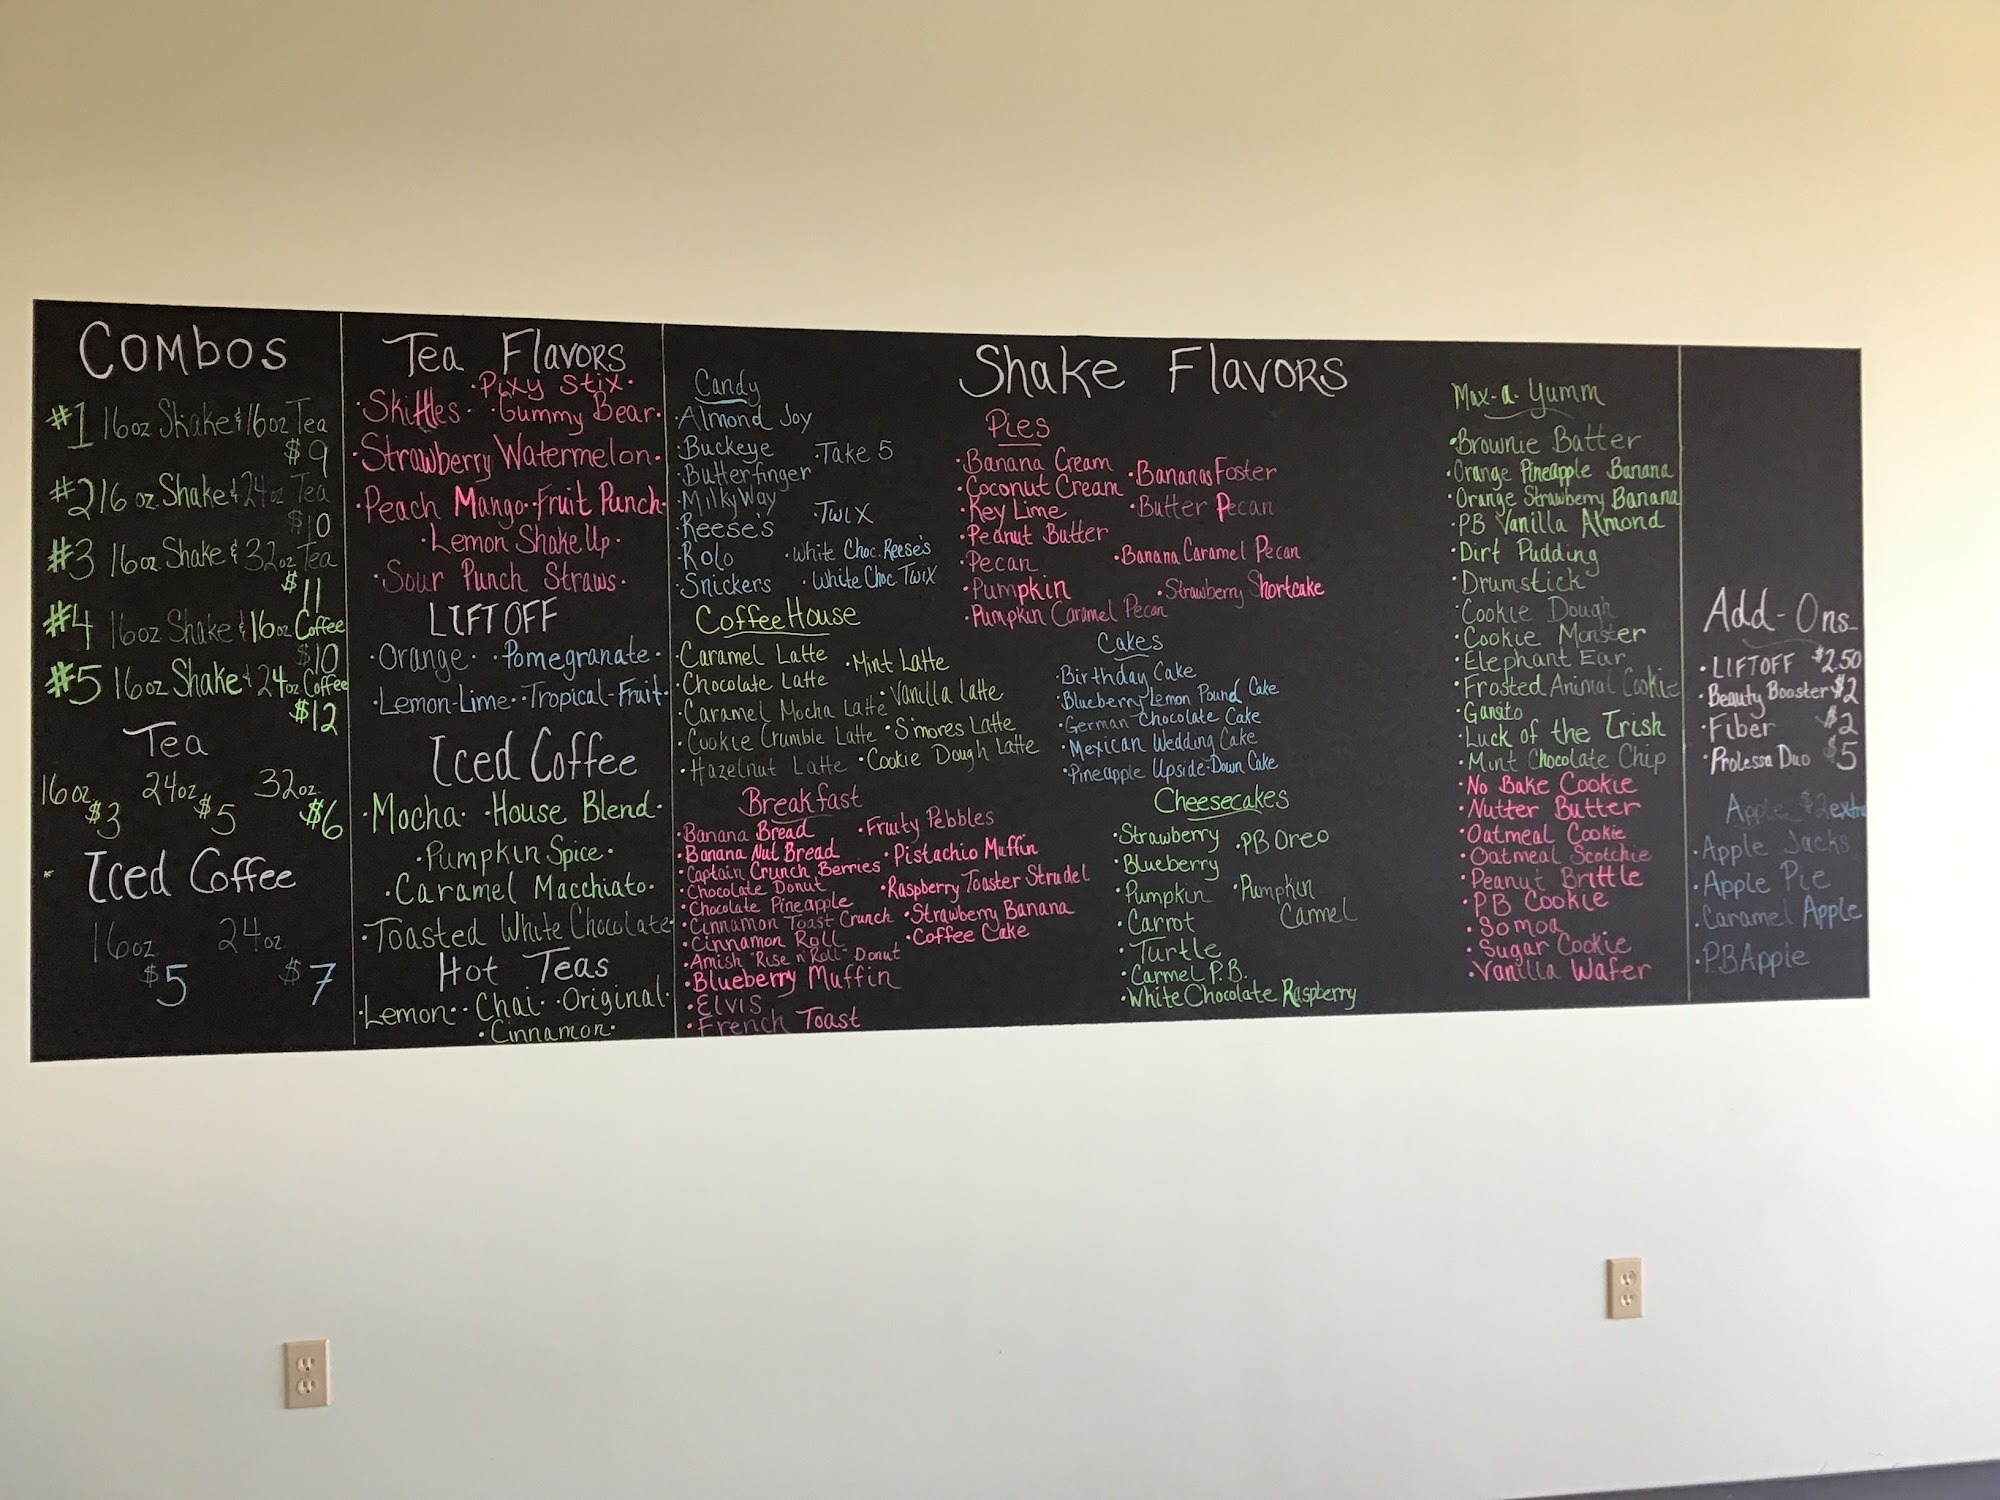 Combos
#1 16oz Shake & 16oz Tea
$9
#2 16 oz. Shake & 24oz Tea
$10
#3 16oz Shake & 32oz Tea
$11
#4 16oz Shake & 16oz Coffee
$10
#5 16oz Shake & 24oz Coffee
$12
Tea
16oz 24oz 32oz.
$3 $5 $6
Iced Coffee
16oz 24oz
$5 $7
Tea Flavors
·Pixy Stix·
·Skittles· ·Gummy Bear·
·Strawberry Watermelon·
·Peach Mango··Fruit Punch·
·Lemon Shake Up·
·Sour Punch Straws·
LIFTOFF
·Orange· ·Pomegranate·
·Lemon-Lime··Tropical-Fruit·
Iced Coffee
·Mocha· ·House Blend·
·Pumpkin Spice·
·Caramel Macchiato·
·Toasted White Chocolate·
Hot Teas
·Lemon··Chai··Original·
·Cinnamon·
Shake Flavors
Candy
·Almond Joy
·Buckeye ·Take 5
·Butterfinger
·MilkyWay
·Reese's ·Twix
·Rolo ·White Choc. Reese's
·Snickers ·White Choc Twix
Coffee House
·Caramel Latte ·Mint Latte
·Chocolate Latte
·Caramel Mocha Latte ·Vanilla Latte
·Cookie Crumble Latte ·S'mores Latte
·Hazelnut Latte ·Cookie Dough Latte
Breakfast
·Banana Bread ·Fruity Pebbles
·Banana Nut Bread ·Pistachio Muffin
·Captain Crunch Berries
·Chocolate Donut ·Raspberry Toaster Strudel
·Chocolate Pineapple
·Cinnamon Toast Crunch ·Strawberry Banana
·Cinnamon Roll ·Coffee Cake
·Amish "Rise n' Roll" Donut
·Blueberry Muffin
·Elvis
·French Toast
Pies
·Banana Cream ·Bananas Foster
·Coconut Cream
·Key Lime ·Butter Pecan
·Peanut Butter
·Pecan ·Banana Caramel Pecan
·Pumpkin ·Strawberry Shortcake
·Pumpkin Caramel Pecan
Cakes
·Birthday Cake
·Blueberry Lemon Pound Cake
·German Chocolate Cake
·Mexican Wedding Cake
·Pineapple Upside-Down Cake
Cheesecakes
·Strawberry ·PB Oreo
·Blueberry
·Pumpkin ·Pumpkin
·Carrot Carmel
·Turtle
·Carmel P.B.
·White Chocolate Raspberry
Max-a-Yumm
·Brownie Batter
·Orange Pineapple Banana
·Orange Strawberry Banana
·PB Vanilla Almond
·Dirt Pudding
·Drumstick
·Cookie Dough
·Cookie Monster
·Elephant Ear
·Frosted Animal Cookie
·Gansito
·Luck of the Irish
·Mint Chocolate Chip
·No Bake Cookie
·Nutter Butter
·Oatmeal Cookie
·Oatmeal Scotchie
·Peanut Brittle
·PB Cookie
·Somoa
·Sugar Cookie
·Vanilla Wafer
Add-Ons
·LIFTOFF $2.50
·Beauty Booster $2
·Fiber $2
·Prolessa Duo $5
Apple $2 extra
·Apple Jacks
·Apple Pie
·Caramel Apple
·PB Apple